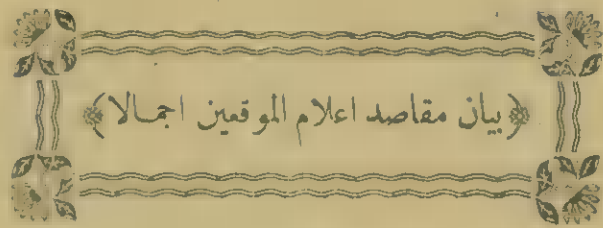 ﴿بيان مقاصد اعلام الموقعين اجمالا﴾